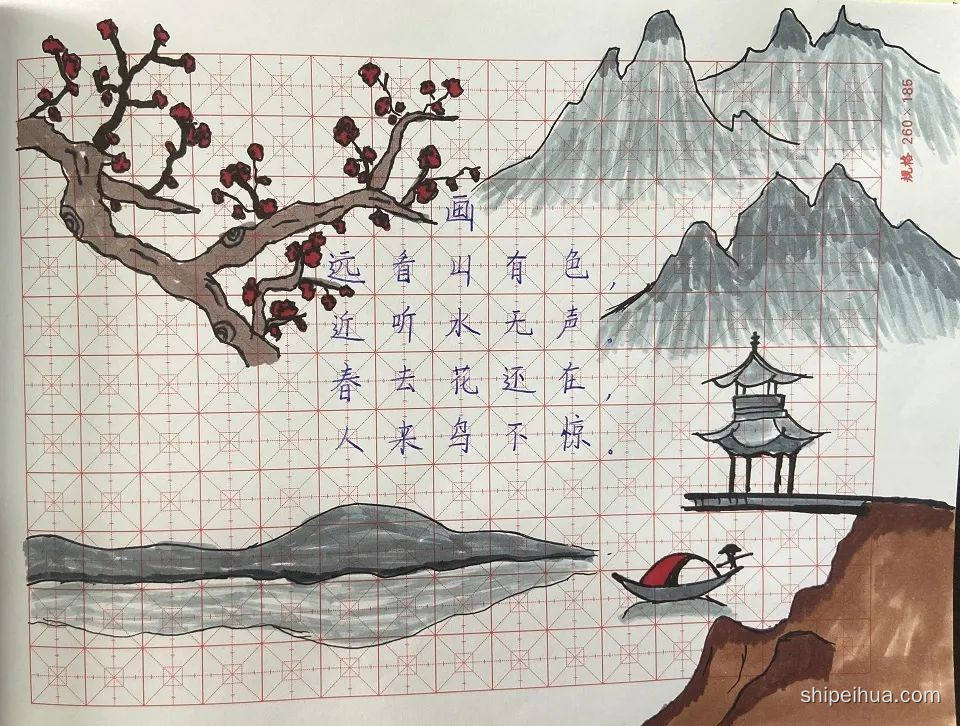 画
远看山有色，
近听水无声。
春去花还在，
人来鸟不惊。
规格 260×185
shipeihua.com